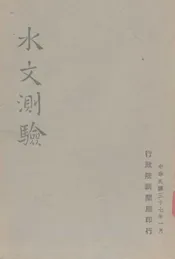 水文測驗
中華民國三十七年一月
行政院新聞局印行